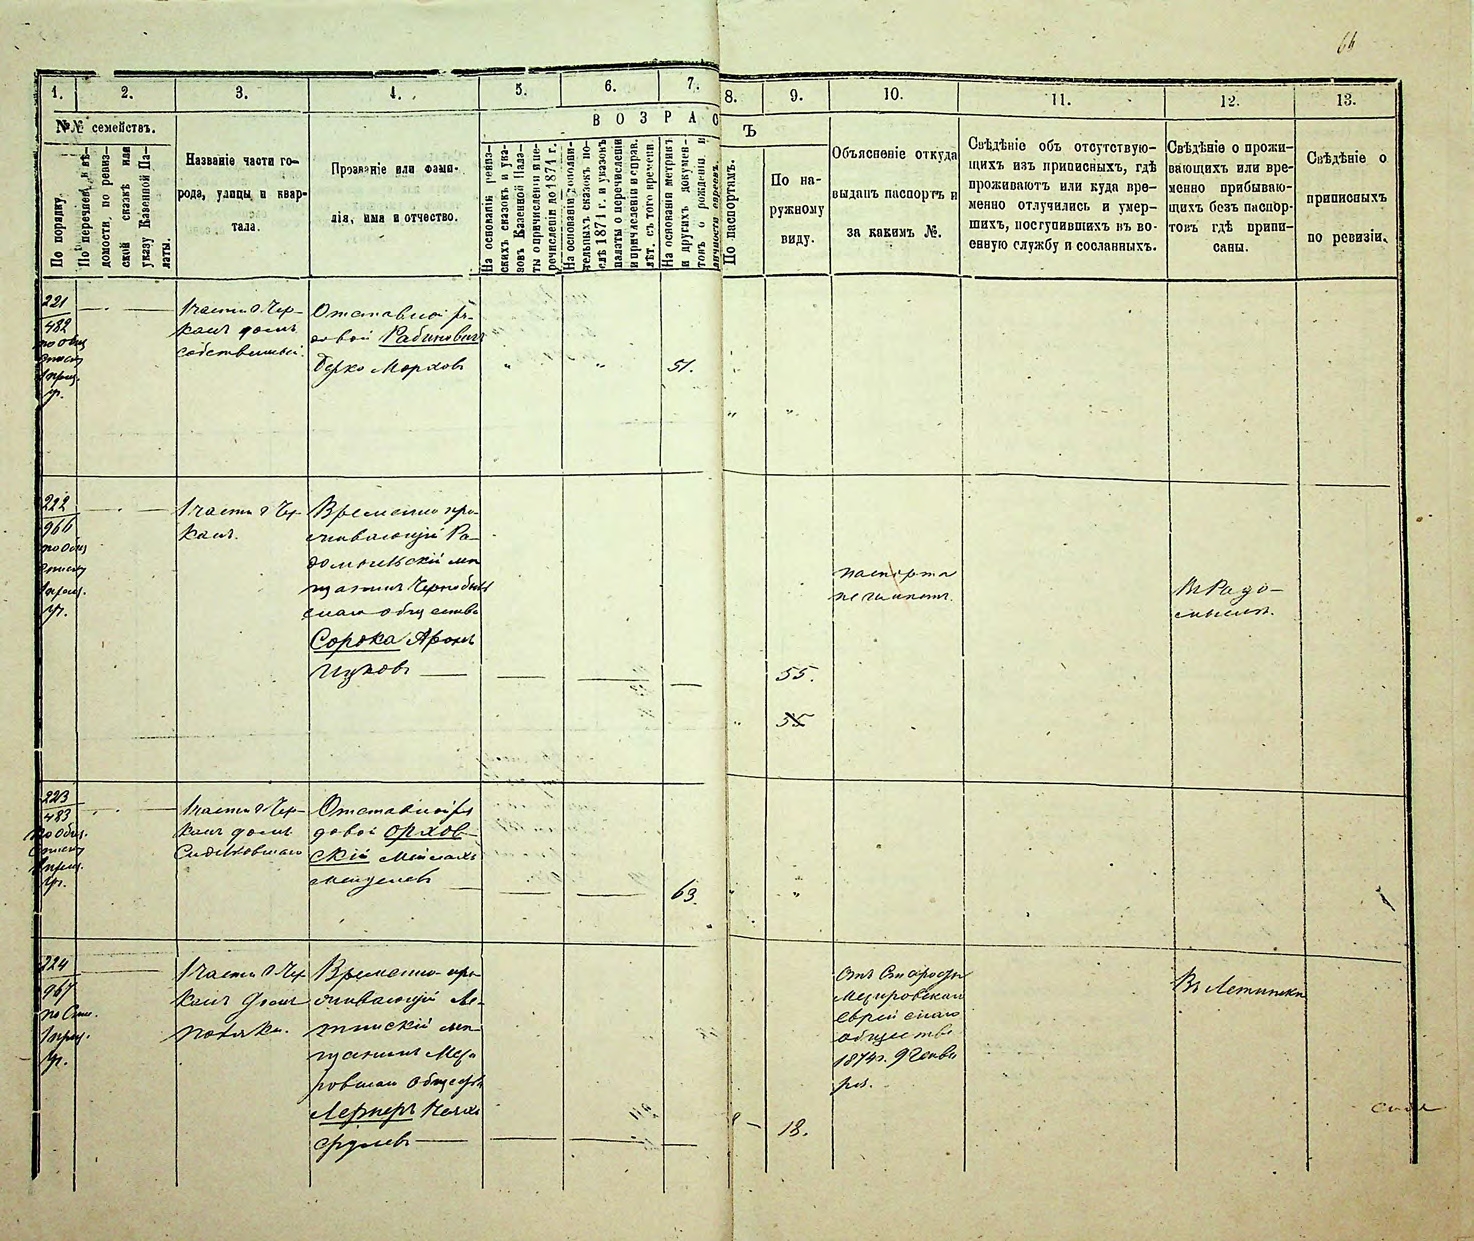 66
1.
2.
3.
4.
5.
6.
7.
8.
9.
10.
11.
12.
13.
№№ семействъ.
В О З Р А С
Ъ
По порядку.
По перечневой вѣ-
домости, по ревиз-
ской сказкѣ или
указу Казенной Па-
латы.
Названіе части го-
рода, улицы и квар-
тала.
Прозваніе или фами-
лія, имя и отчество.
На основаніи ревиз-
скихъ сказокъ и ука-
зовъ Казенной Пала-
ты о причисленіи и пе-
речисленіи до 1874 г.
На основаніи дополни-
тельныхъ сказокъ по-
слѣ 1874 г. и указовъ
палаты о перечисленіи
и причисленіи справ.
лѣт. съ того времени.
На основаніи метрикъ
и другихъ докумен-
товъ о рожденіи и
личности евреевъ.
По паспортамъ.
По на-
ружному
виду.
Объясненіе откуда
выданъ паспортъ и
за какимъ №.
Свѣдѣніе объ отсутствую-
щихъ изъ приписныхъ, гдѣ
проживаютъ или куда вре-
менно отлучились и умер-
шихъ, поступившихъ въ во-
енную службу и сосланныхъ.
Свѣдѣніе о прожи-
вающихъ или вре-
менно прибываю-
щихъ безъ паспор-
товъ гдѣ припи-
саны.
Свѣдѣніе о
приписныхъ
по ревизіи.
221
482
по общ
списку
1 части г. Чер-
касъ домъ
собственный.
Отставной ря-
довой Рабиновичъ
Берко Морховъ
51.
222
966
по общ
списку
1 части г. Чер-
касъ.
Временно про-
живающій Ра-
домысльскій мѣ-
щанинъ Чернобыль
скаго общества
Сорока Аронъ
Ицковъ
55.
55
паспорта
не имѣетъ.
Въ Радо-
мыслѣ.
223
483
по общ.
списку
1 части г. Чер-
касъ домъ
Отставной ря
довой Орхов-
скій
Менделевъ
63.
224
967
по спис.
1 части г. Чер
касъ домъ
Временно про-
живающій Ле-
тинскій мѣ-
щанинъ
общества
Лернеръ
Срулевъ
18.
Отъ Старосты
Межировскаго
Еврейскаго
общества
1874 г. 9 Генва
ря.
Въ Летинскѣ